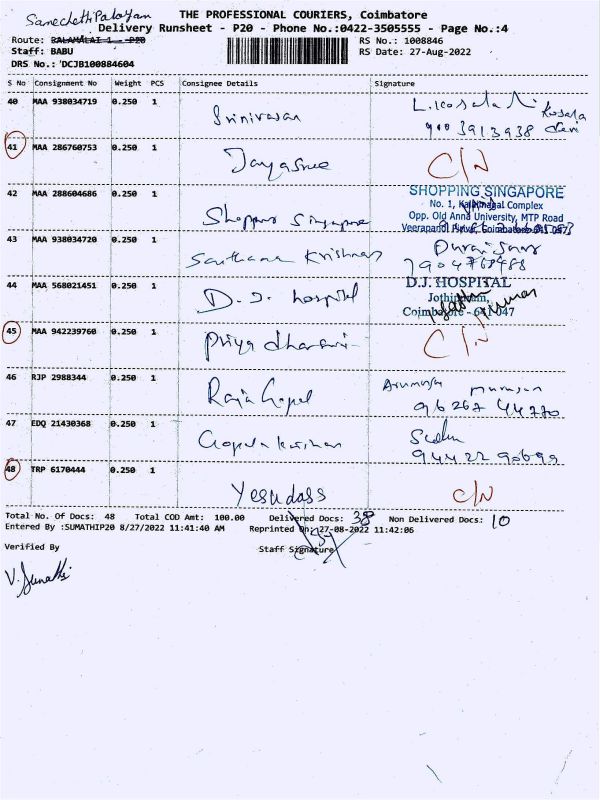 Sanedeth Palayam
THE PROFESSIONAL COURIERS, Coimbatore
Delivery Runsheet - P20 - Phone No.:0422-3505555 - Page No.:4
Route: BALAMALAI 1 - P20
RS No.: 1008846
Staff: BABU
RS Date: 27-Aug-2022
DRS No.: DCJB100884604
S No Consignment No Weight PCS Consignee Details Signature
40 MAA 938034719 0.250 1 Srinivasan L. Kosala
9003913938
41 MAA 286760753 0.250 1 Jayasree C/N
42 MAA 288604686 0.250 1 Shoppers Singapore
SHOPPING SINGAPORE
No. 1, Complex
Opp. Old Anna University, MTP Road
43 MAA 938034720 0.250 1 Santhana Krishnan
44 MAA 568021451 0.250 1 D.J. hospital
D.J. HOSPITAL
Jothipuram,
Coimbatore - 641 047
45 MAA 942239760 0.250 1 Priya dharani C/N
46 RJP 2988344 0.250 1 Raja Gopal
96267 44770
47 EDQ 21430368 0.250 1 Gopalakrishnan
94422 90699
48 TRP 6170444 0.250 1 Yesudass C/N
Total No. Of Docs: 48 Total COD Amt: 100.00 Delivered Docs: 38 Non Delivered Docs: 10
Entered By :SUMATHIP20 8/27/2022 11:41:40 AM Reprinted On: 27-08-2022 11:42:06
Verified By
Staff Signature
V. Sumathi